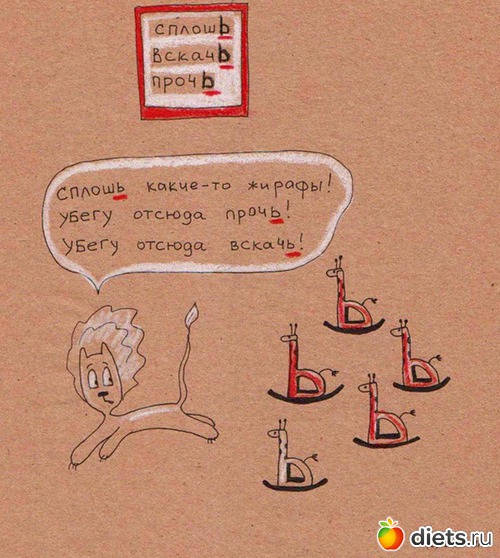 сплошь
вскачь
прочь
сплошь какие-то жирафы!
убегу отсюда прочь!
убегу отсюда вскачь!
diets.ru